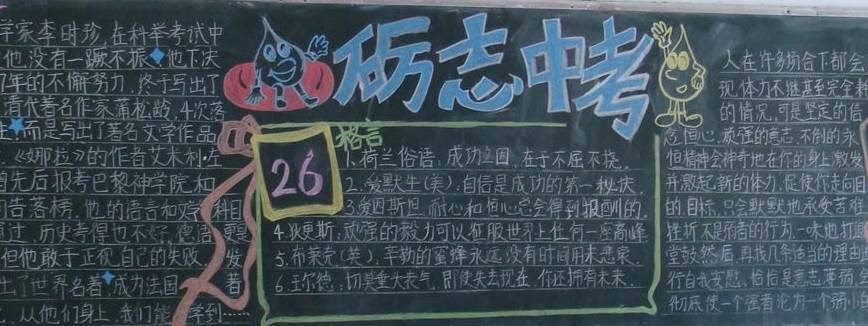 学家李时珍,在科举考试中
他没有一蹶不振 他下决
7年的不懈努力,终于写出了
清代著名作家蒲松龄,4次落
而是写出了著名文学作品
《娜拉》的作者艾米利·左
曾先后报考巴黎神学院,和
告落榜,他的语言和文学科目
过,历史考得也不好,德语更是
但他敢于正视自己的失败,发
出了世界名著,成为法国 著
从他们身上,我们能 学到……
砺志中考
格言
26
1、荷兰俗语:成功之因,在于不屈不挠.
2.爱默生(美):自信是成功的第一秘诀.
3.爱因斯坦:耐心和恒心总会得到报酬的.
4.狄更斯:顽强的毅力可以征服世界上任何一座高峰
5.布莱克(英),辛勤的蜜蜂永远没有时间用来悲哀.
6.王尔德:切莫垂大丧气,即使失去现在,你还拥有未来.
人在许多场合下都会
现,体力不继甚至完全
的情况,可是坚定的信
念,恒心,顽强的意志,不倒的永
恒精神会神奇地在你的身上激发
并激起新的体力,促使你走向
的目标,只会默默地承受苦难
挫折不是强者的行为,一味地打退
堂鼓然后,再找几条适当的理由
行自我安慰,恰恰是意志薄弱
彻底使一个强者沦为一个弱小